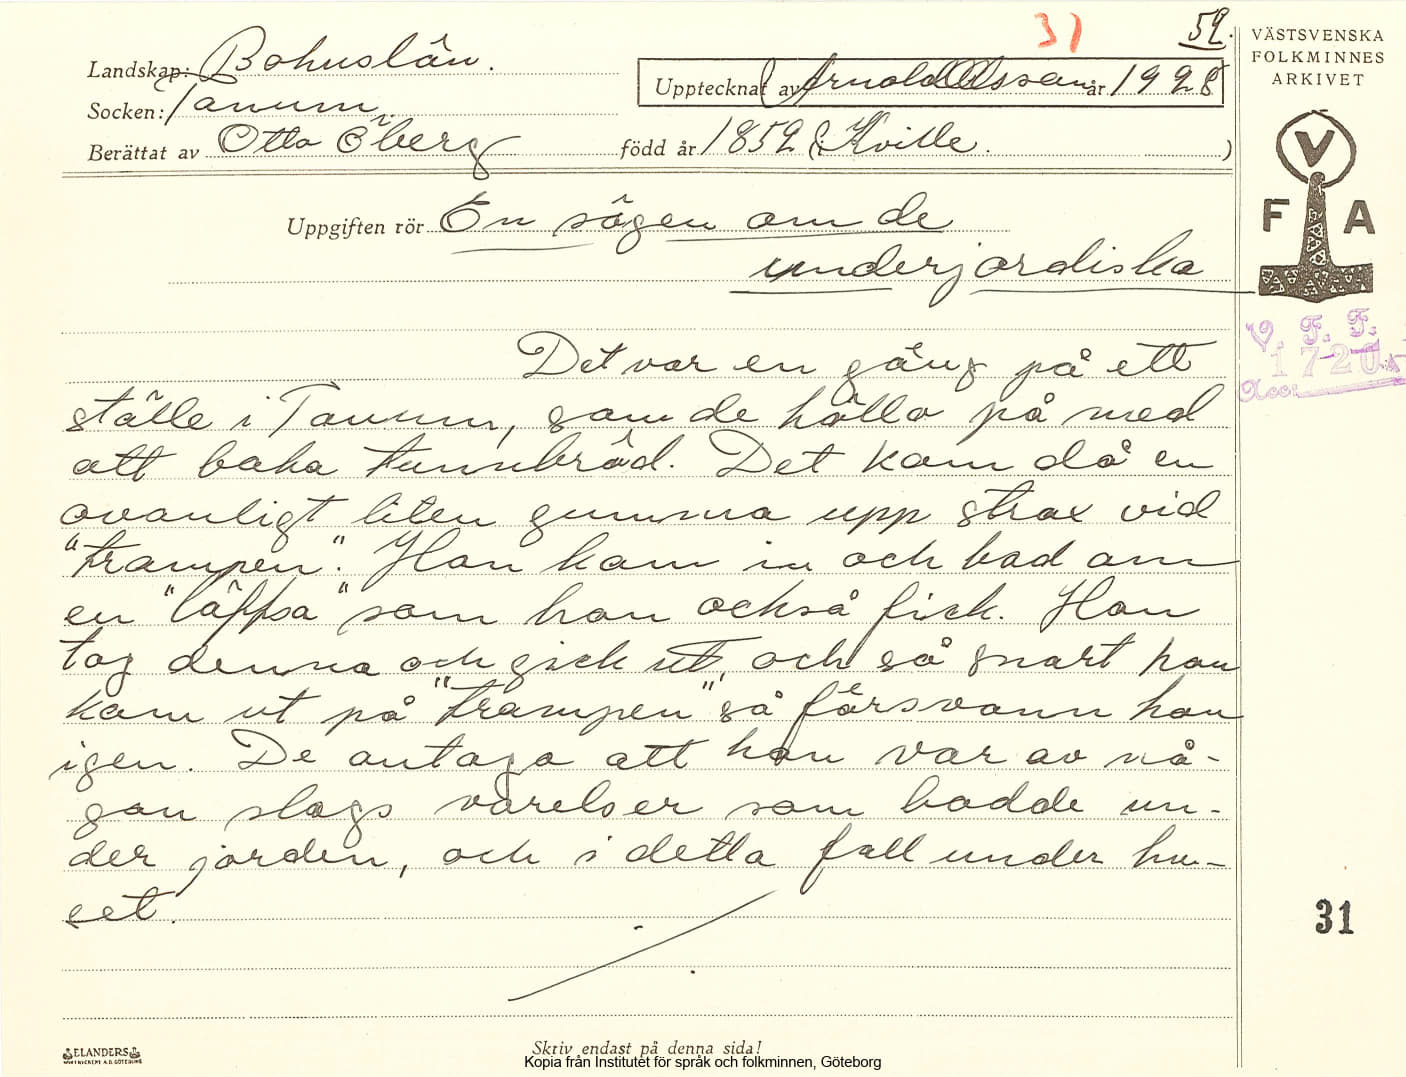 31
52.
VÄSTSVENSKA
FOLKMINNES
ARKIVET
Landskap: Bohuslän.
Upptecknat av Arnold Olsson år 1928
Socken: Tanum
Berättat av Otto Öberg född år 1852 (i Kville. )
V
F A
Uppgiften rör En sägen om de
underjordiska
V. F. F.
1720
Acc.
Det var en gång på ett
ställe i Tanum, som de hållo på med
att baka tunnbröd. Det kom då en
ovanligt liten gumma upp strax vid
"trampen". Hon kom in och bad om
en "löffsa" som hon också fick. Hon
tog denna och gick ut, och så snart hon
kom ut på "trampen" så försvann hon
igen. De antaga att hon var av nå-
gon slags varelser som bodde un-
der jorden, och i detta fall under hu-
set.
31
ELANDERS
Skriv endast på denna sida!
Kopia från Institutet för språk och folkminnen, Göteborg